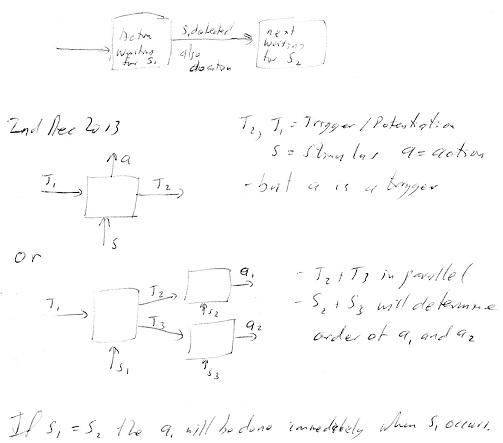 Action waiting for S1
S1 detected also do action
next waiting for S2
2nd Dec 2013
T2, T1 = Trigger/Potentiation
S = Stimulus a = action
- but a is a trigger
a
T1
T2
S
or
T1
T2
T3
S1
S2
S3
a1
a2
- T2 + T3 in parallel
- S2 + S3 will determine
order of a1 and a2
If S1 = S2 the a1 will be done immediately when S1 occurs.